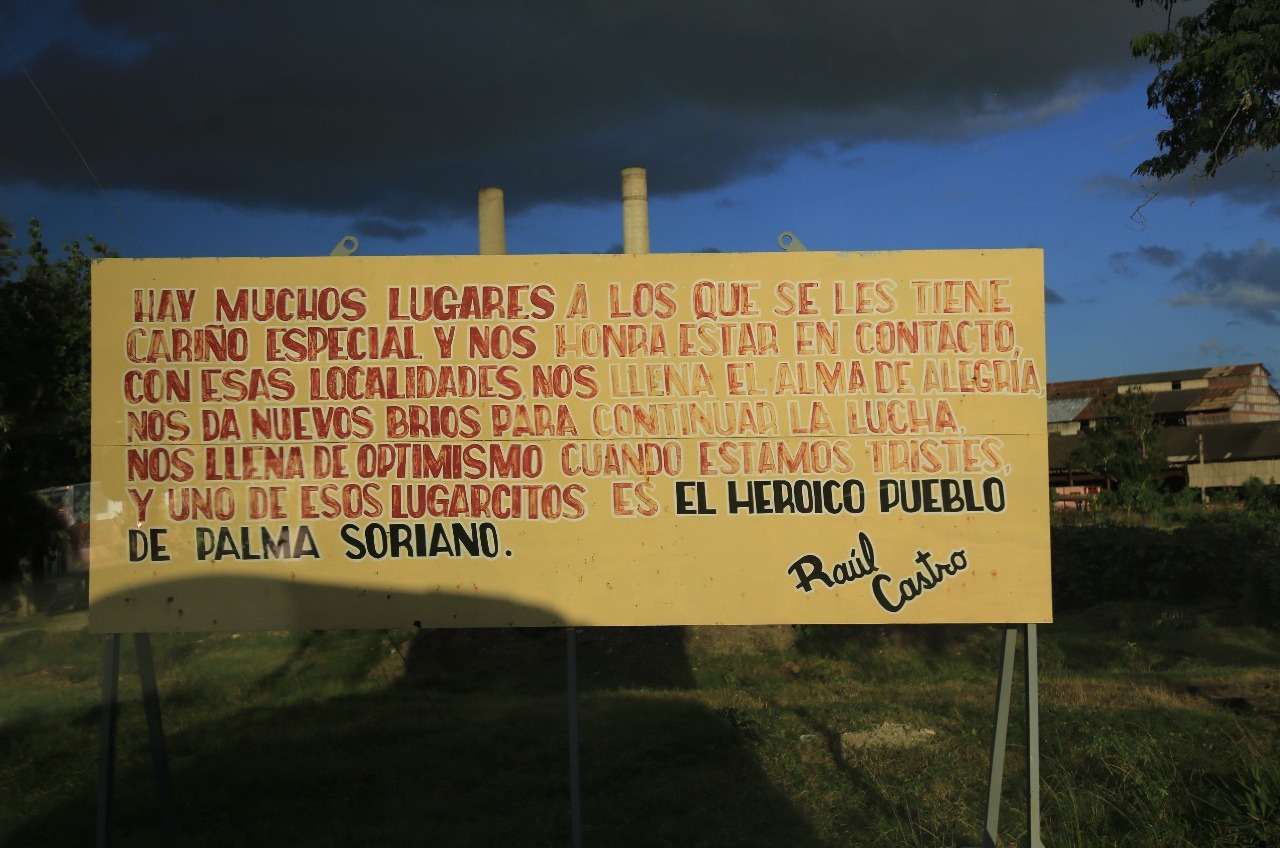 HAY MUCHOS LUGARES A LOS QUE SE LES TIENE
CARIÑO ESPECIAL Y NOS HONRA ESTAR EN CONTACTO,
CON ESAS LOCALIDADES, NOS LLENA EL ALMA DE ALEGRÍA,
NOS DA NUEVOS BRIOS PARA CONTINUAR LA LUCHA,
NOS LLENA DE OPTIMISMO CUANDO ESTAMOS TRISTES,
Y UNO DE ESOS LUGARCITOS ES EL HEROICO PUEBLO
DE PALMA SORIANO.
Raúl
Castro